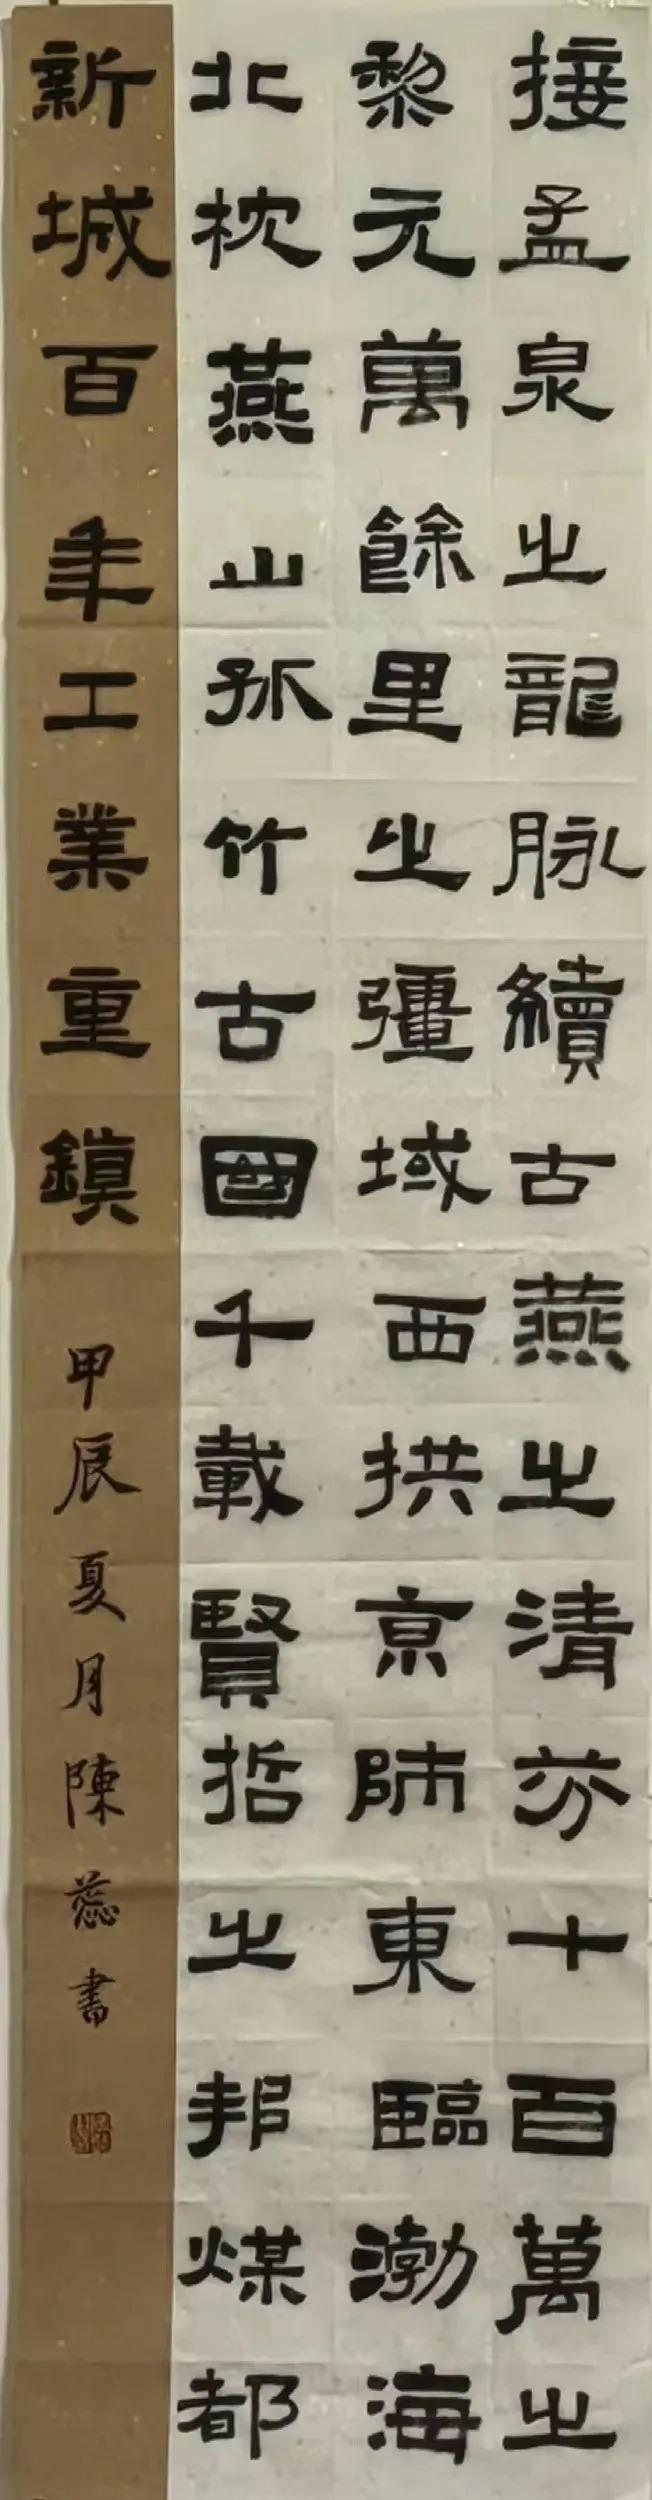 接孟泉之龍脉續古燕之清芬十百萬之
黎元萬餘里之疆域西拱京師東臨渤海
北枕燕山孤竹古國千載賢哲之邦煤都
新城百年工業重鎮
甲辰夏月陳蕊書